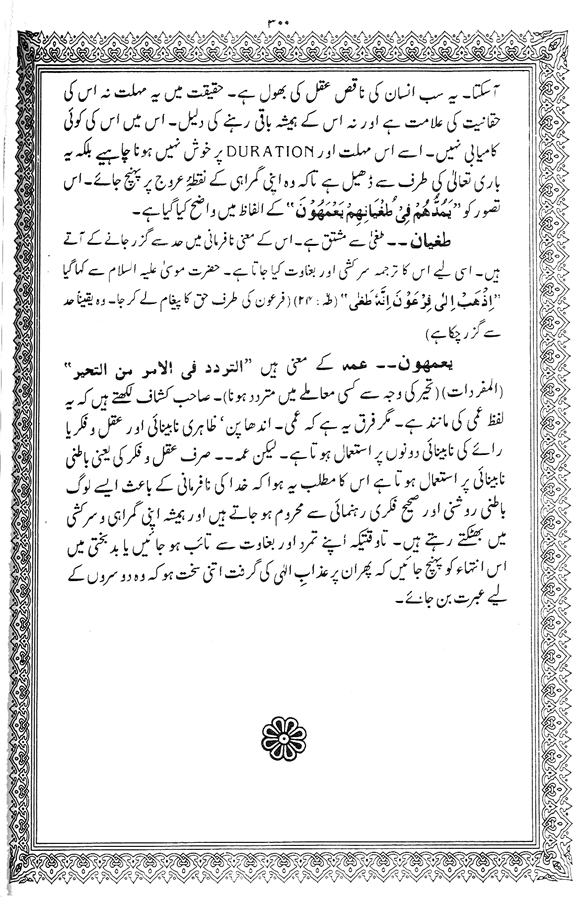 ۳۰۰
آسکتا۔ یہ سب انسان کی ناقص عقل کی بھول ہے۔ حقیقت میں یہ مہلت نہ اس کی
حقانیت کی علامت ہے اور نہ اس کے ہمیشہ باقی رہنے کی دلیل۔ اس میں اس کی کوئی
کامیابی نہیں۔ اسے اس مہلت اور DURATION پر خوش نہیں ہونا چاہیے بلکہ یہ
باری تعالیٰ کی طرف سے ڈھیل ہے تاکہ وہ اپنی گمراہی کے نقطۂ عروج پر پہنچ جائے۔ اس
تصور کو ”یَمُدُّهُمْ فِیْ طُغْیَانِهِمْ یَعْمَهُوْنَ“ کے الفاظ میں واضح کیا گیا ہے۔
طغیان ۔۔ طغیٰ سے مشتق ہے۔ اس کے معنی نافرمانی میں حد سے گزر جانے کے آتے
ہیں۔ اسی لیے اس کا ترجمہ سرکشی اور بغاوت کیا جاتا ہے۔ حضرت موسیٰ علیہ السلام سے کہا گیا
”اِذْهَبْ اِلٰی فِرْعَوْنَ اِنَّهٗ طَغٰی“ (طٰہٰ : ۲۴) (فرعون کی طرف حق کا پیغام لے کر جا۔ وہ یقیناً حد
سے گزر چکا ہے)
یعمهون ۔۔ عمه کے معنی ہیں ”التردد فی الامر من التحیر“
(المفردات) (تحیر کی وجہ سے کسی معاملے میں متردد ہونا)۔ صاحب کشاف لکھتے ہیں کہ یہ
لفظ عمی کی مانند ہے۔ مگر فرق یہ ہے کہ عمی۔ اندھا پن‘ ظاہری نابینائی اور عقل و فکر یا
رائے کی نابینائی دونوں پر استعمال ہوتا ہے۔ لیکن عمہ ۔۔ صرف عقل و فکر کی یعنی باطنی
نابینائی پر استعمال ہوتا ہے اس کا مطلب یہ ہوا کہ خدا کی نافرمانی کے باعث ایسے لوگ
باطنی روشنی اور صحیح فکری رہنمائی سے محروم ہو جاتے ہیں اور ہمیشہ اپنی گمراہی و سرکشی
میں بھٹکتے رہتے ہیں۔ تاوقتیکہ اپنے تمرد اور بغاوت سے تائب ہو جائیں یا بدبختی میں
اس انتہاء کو پہنچ جائیں کہ پھر ان پر عذابِ الٰہی کی گرفت اتنی سخت ہو کہ وہ دوسروں کے
لیے عبرت بن جائے۔